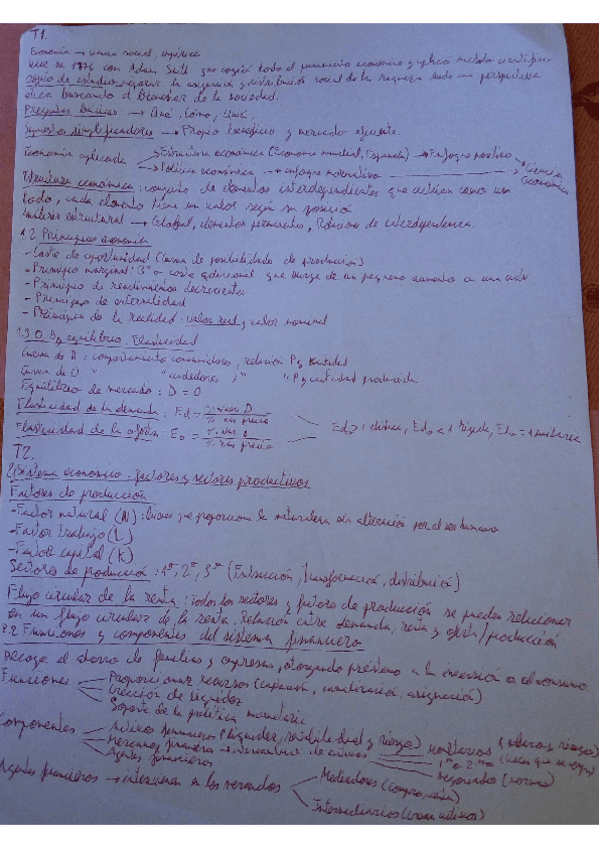 T1.
Economía → ciencia social, empírica
1776 con Adam Smith que cogió todo el pensamiento económico y aplicó método científico
Objeto de estudio: la asignación y distribución social de la riqueza desde una perspectiva
ética buscando el bienestar de la sociedad.
Preguntas básicas → Qué, Cómo, Quién.
Supuestos simplificadores → Propio beneficio y mercado eficiente.
Economía aplicada Estructura económica (Economía mundial, Española) → Enfoque positivo Ciencia
Política económica → enfoque normativo económica
Estructura económica: conjunto de elementos interdependientes que actúan como un
todo, cada elemento tiene un valor según su posición
Análisis estructural → Global, elementos permanentes, Relaciones de interdependencia.
1.2 Principios economía
- Coste de oportunidad (curva de posibilidades de producción)
- Principio marginal: Bº o coste adicional que surge de un pequeño aumento en una acción
- Principio de rendimientos decrecientes
- Principio de externalidad
- Principio de la realidad: valor real y valor nominal
1.3 O, D, equilibrio, Elasticidad
Curva de D: comportamiento consumidores, relación P y cantidad
Curva de O: " " vendedores, " " P y cantidad producida
Equilibrio de mercado: D = O
Elasticidad de la demanda: Ed = % var D / % var precio
Elasticidad de la oferta: Eo = % var O / % var precio
Ed > 1 elástica, Ed < 1 rígida, Ed = 1 unitaria
T2.
2.1 Sistema económico: factores y sectores productivos
Factores de producción
- Factor natural (N): bienes que proporciona la naturaleza sin alteración por el ser humano
- Factor trabajo (L)
- Factor capital (K)
Sectores de producción: 1º, 2º, 3º (Extracción, transformación, distribución)
Flujo circular de la renta: Todos los sectores y factores de producción se pueden relacionar
en un flujo circular de la renta. Relación entre demanda, renta y oferta/producción
2.2 Funciones y componentes del sistema financiero
Recoge el ahorro de familias y empresas, otorgando préstamo a la inversión o al consumo
Funciones Proporcionar recursos (captación, canalización, asignación)
Creación de liquidez
Soporte de la política monetaria
Componentes Activos financieros (liquidez, rentabilidad y riesgo)
Mercados financieros → intercambio de activos
Agentes financieros
Monetarios
1rio o 2rio
Negociados (norma)
Agentes financieros → intervienen en los mercados Mediadores (compra, venta)
Intermediarios (crean activos)